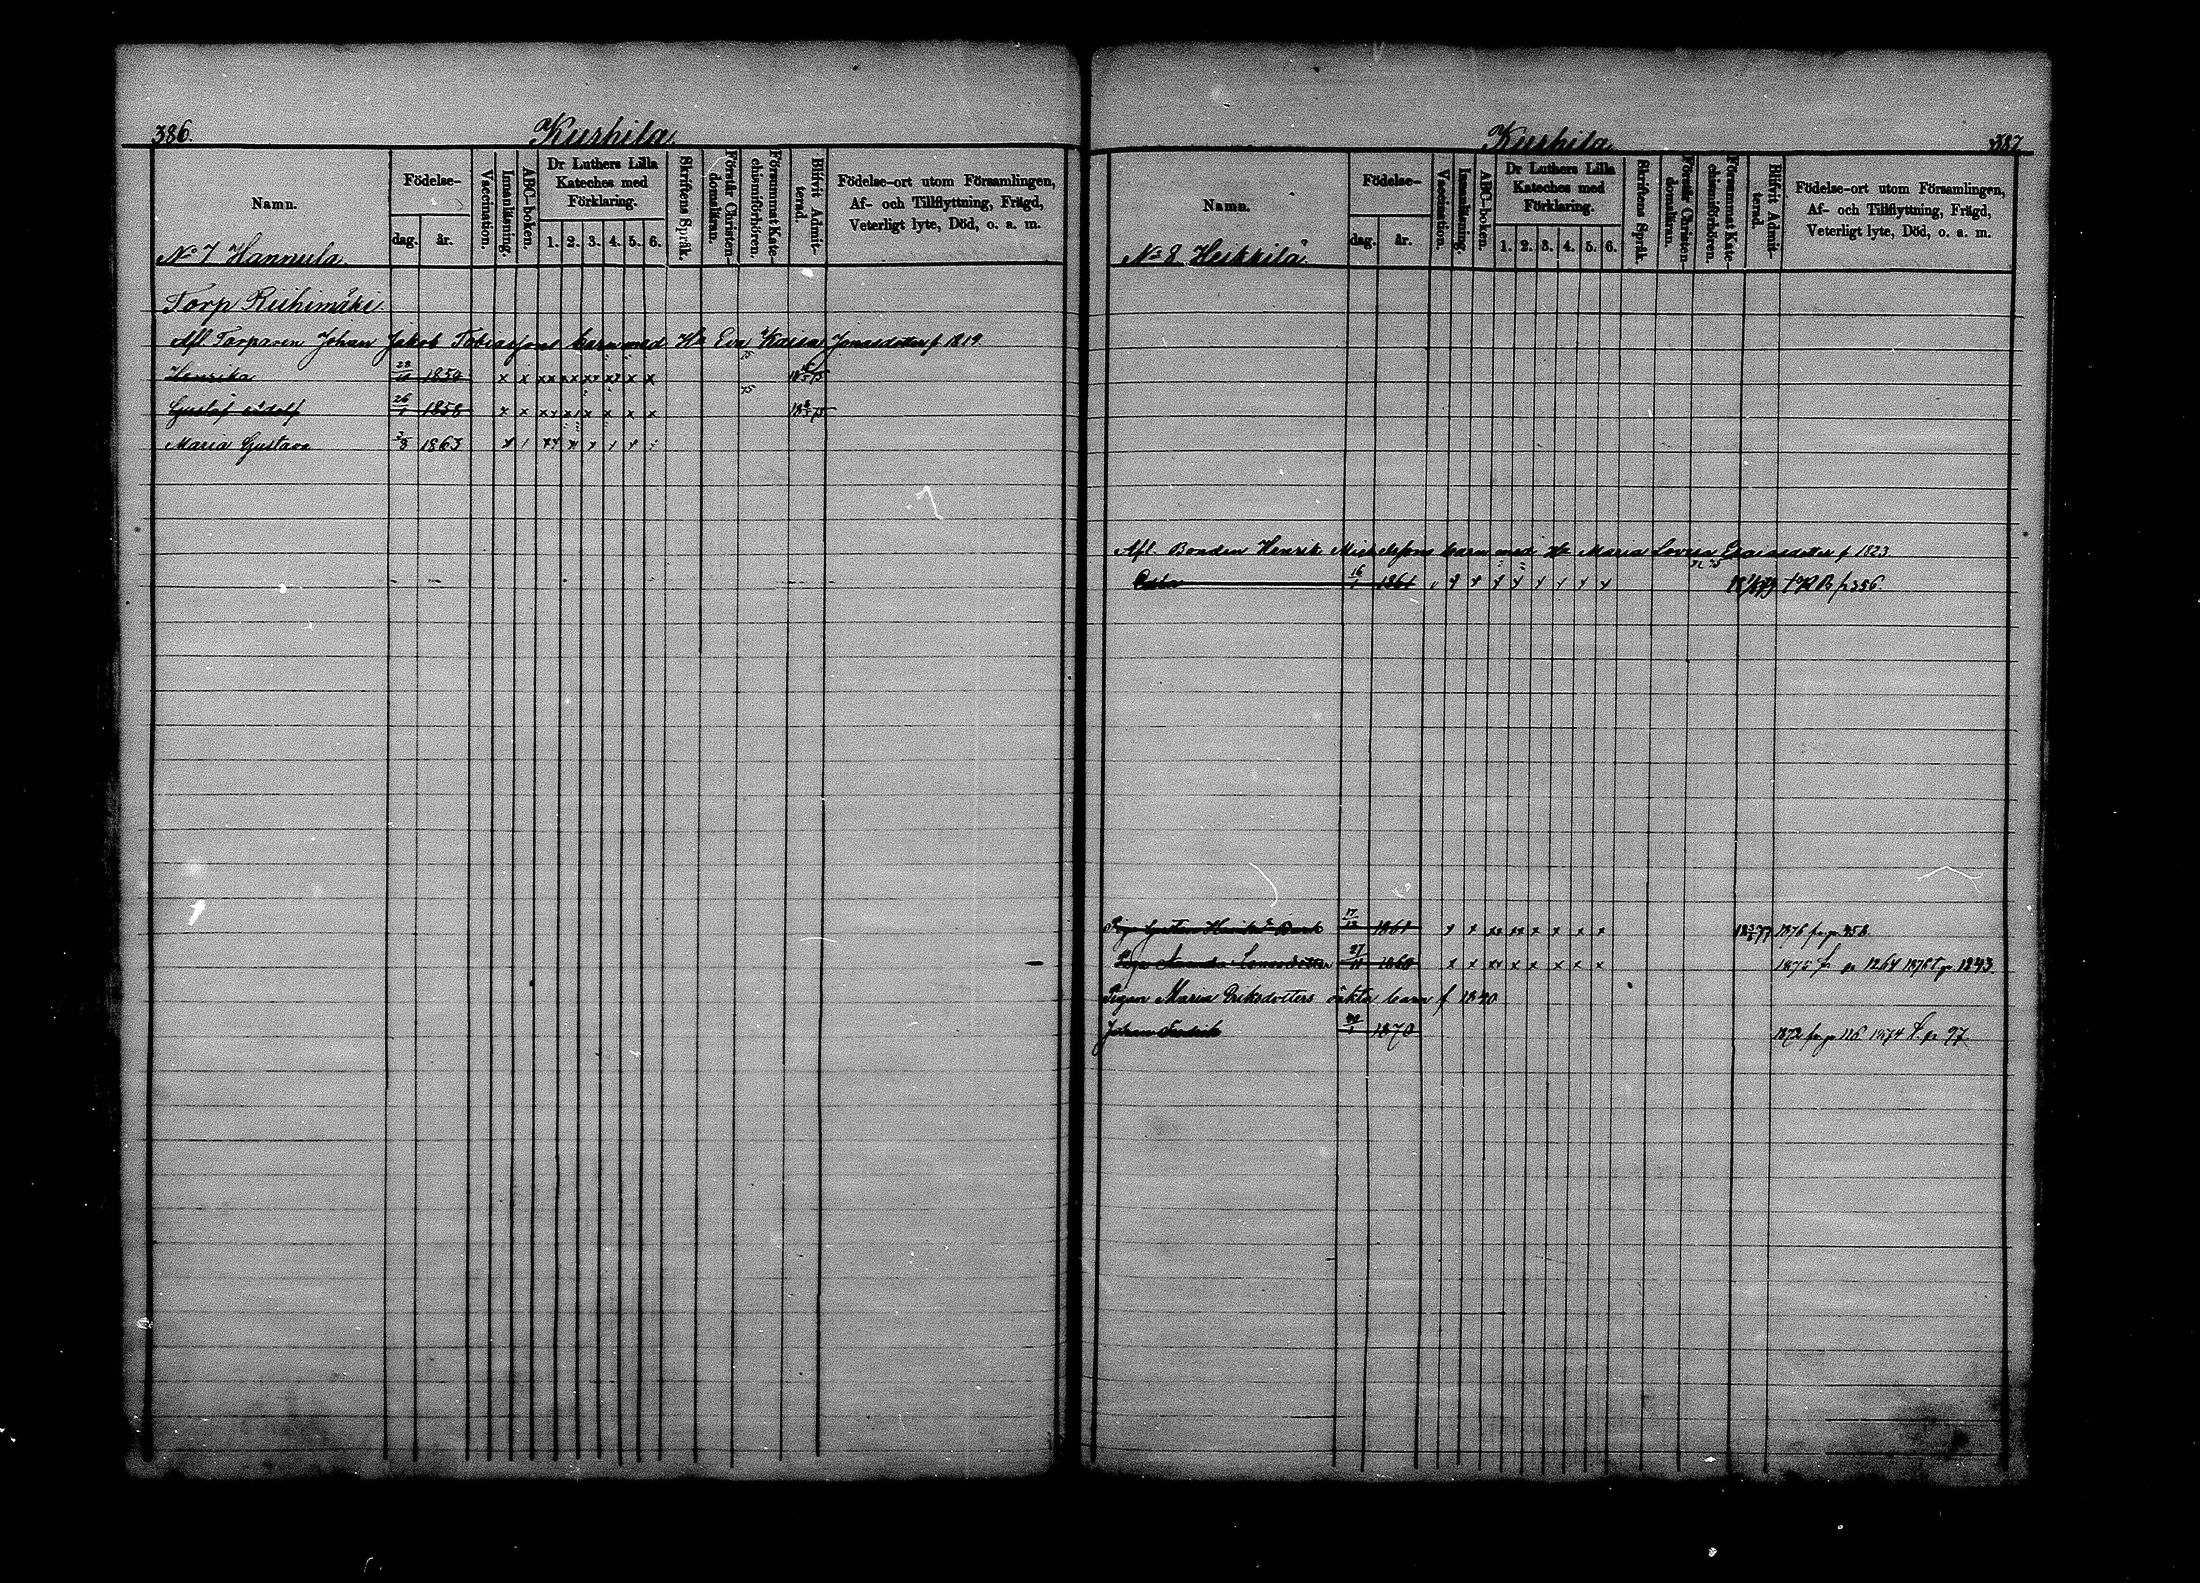 386.
Kushila.
Namn.
Födelse-
dag. år.
Vaccination.
Innanläsning.
ABC-boken.
Dr Luthers Lilla Kateches med Förklaring.
1. 2. 3. 4. 5. 6.
Skriftens Språk.
Förstår Christendomsläran.
Försummat Katechismiförhören.
Blifvit Admitterad.
Födelse-ort utom Församlingen,
Af- och Tillflyttning, Frägd,
Veterligt lyte, Död, o. a. m.
No 7 Hannula
Torp Riihimäki
Afl. Torparen Johan Jakob Tobiassons barn med H. Eva Kaisa Jonasdotter f 1819.
Henrika 1850 x x xx x x x x
Gustaf Adolf 26 1858 x x x x x x x
Maria Gustava 3/8 1863
387
Kushila
Namn.
Födelse-
dag. år.
Vaccination.
Innanläsning.
ABC-boken.
Dr Luthers Lilla Kateches med Förklaring.
1. 2. 3. 4. 5. 6.
Skriftens Språk.
Förstår Christendomsläran.
Försummat Katechismiförhören.
Blifvit Admitterad.
Födelse-ort utom Församlingen,
Af- och Tillflyttning, Frägd,
Veterligt lyte, Död, o. a. m.
No 8 Heikkilä
Afl. Bonden Henrik Michelssons barn med H. Maria Lovisa Esaiasdotter f 1823.
16 1861 p 356.
Gustava 17/12 1861 x x xx xx x x x x 1876 fr pa 458.
27 1860 x x xx x x x x x 1875 fr pa 1264 1876 t pa 1243.
Pigan Maria Eriksdotters oäkta barn f 1840
Johan Fredrik 1870 1872 fr pa 116 1874 t. pa 97